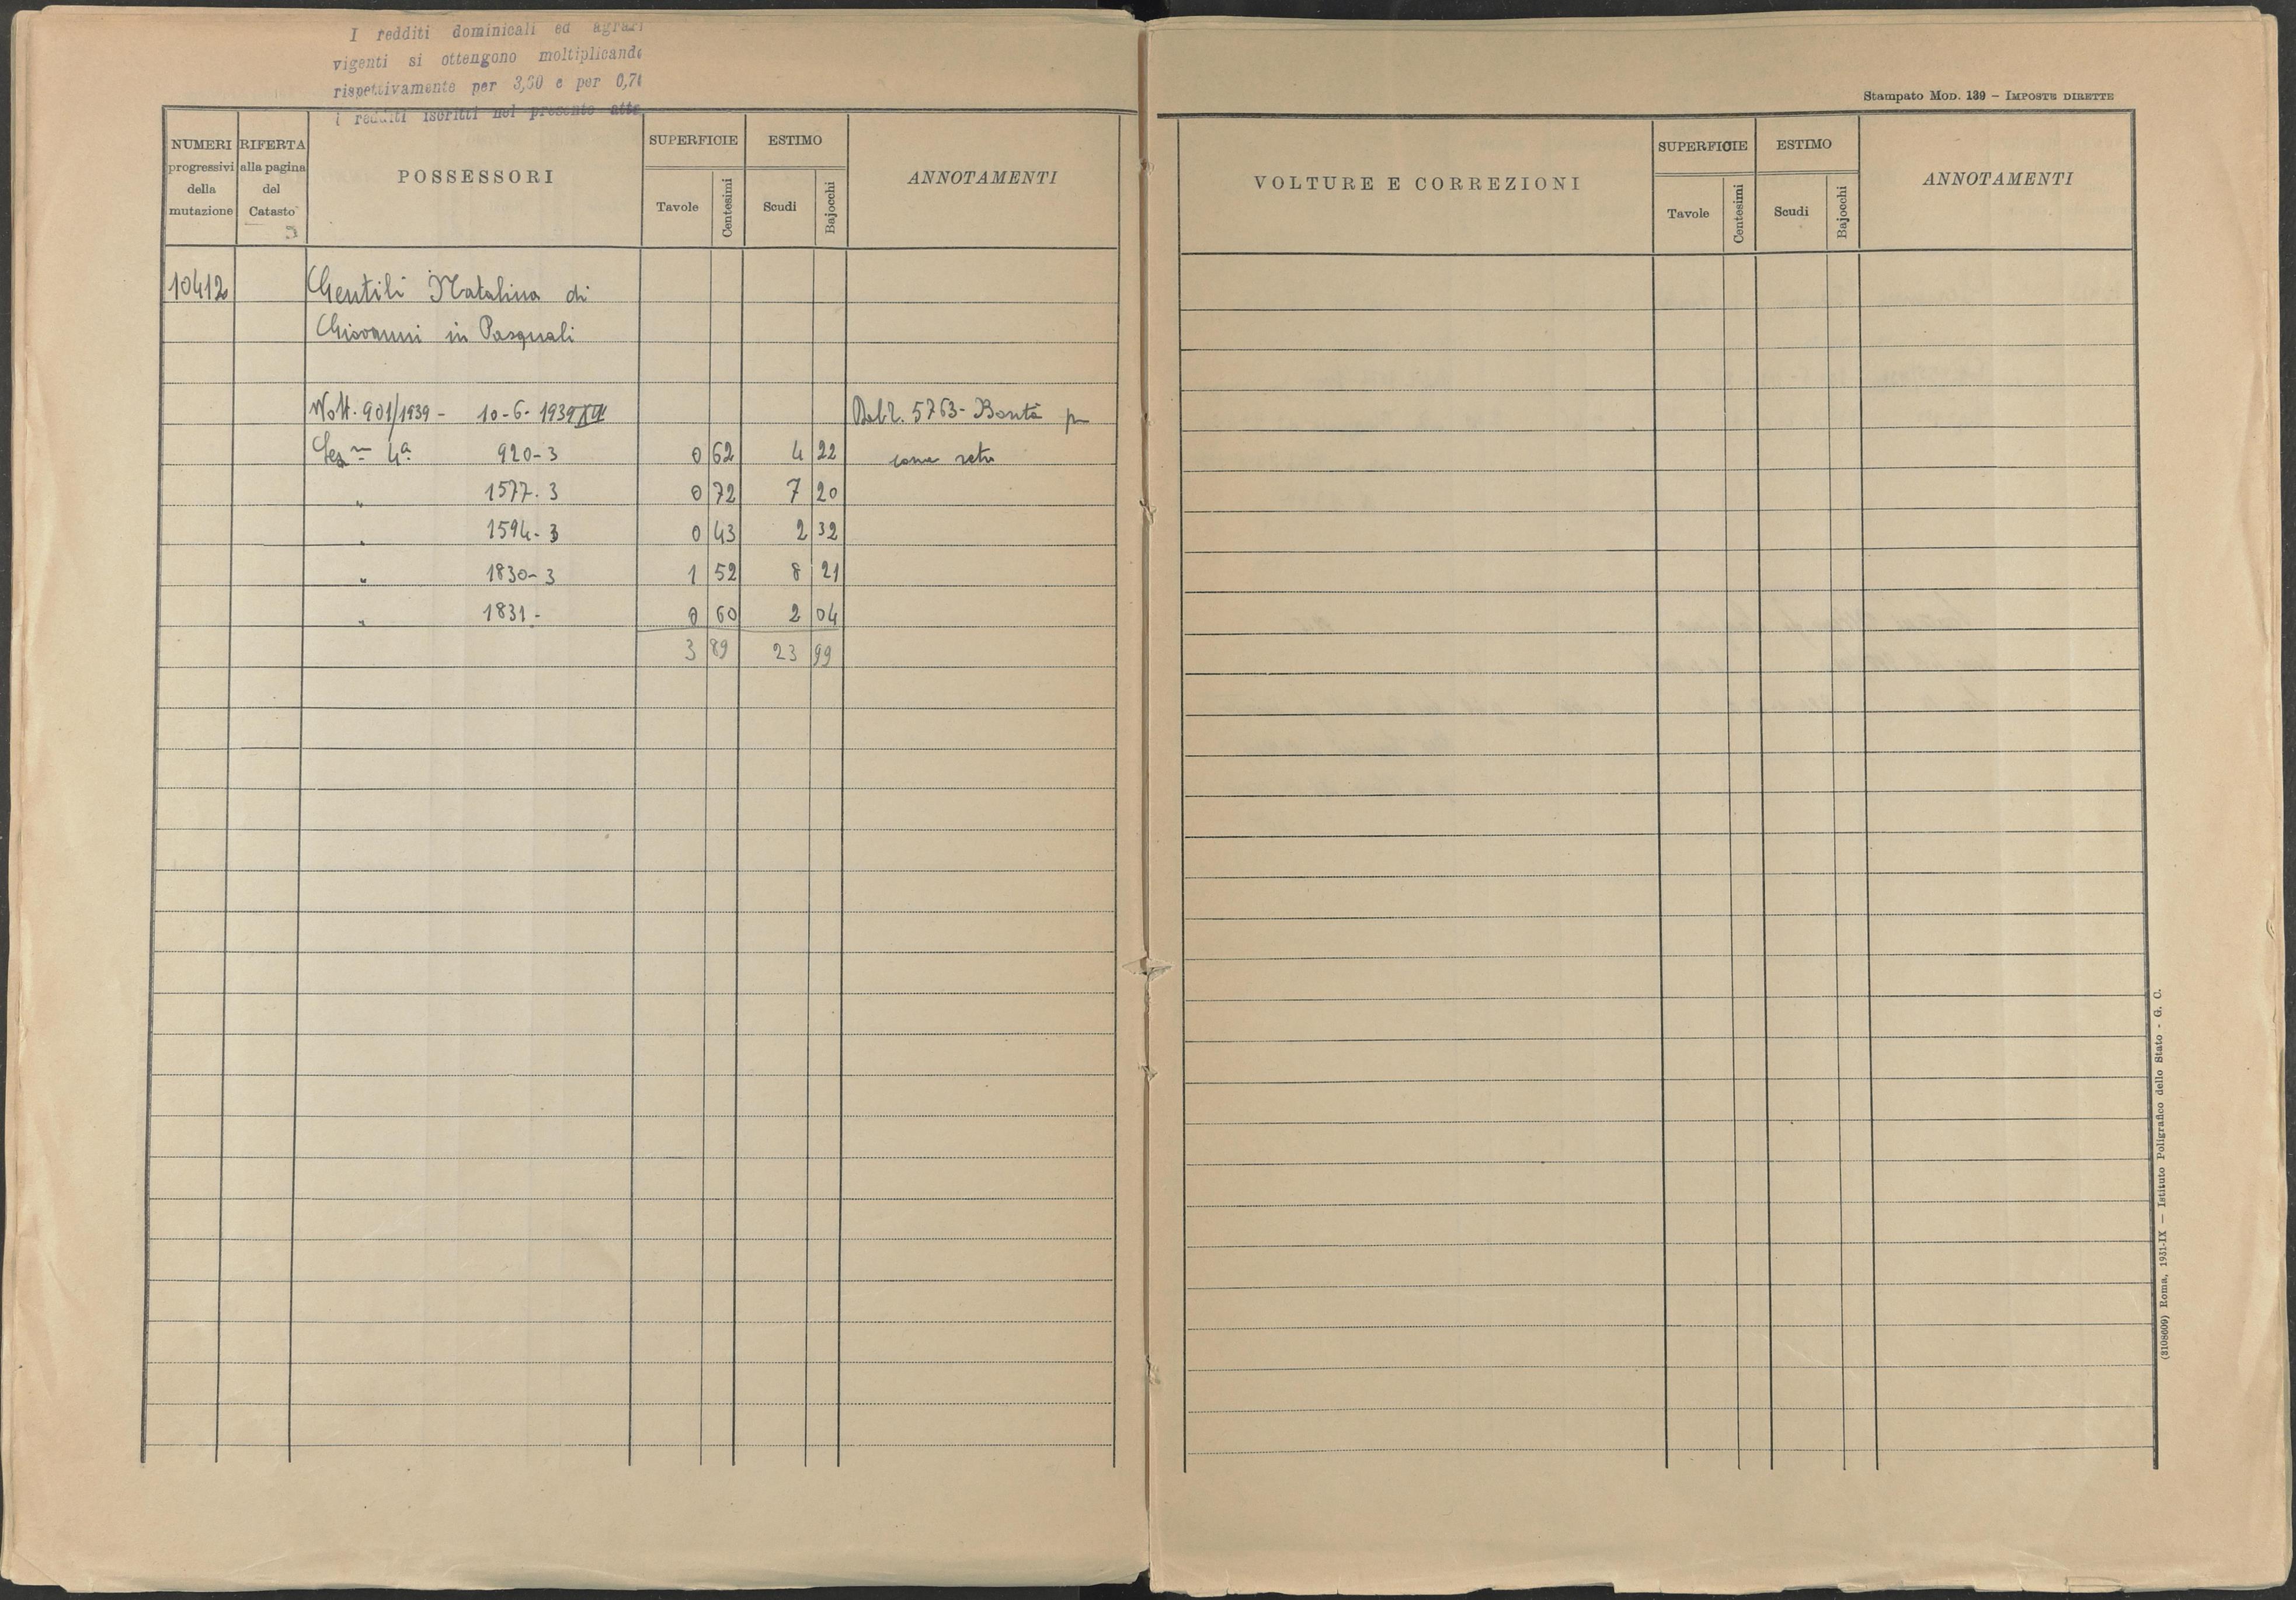 I redditi dominicali ed agrari
vigenti si ottengono moltiplicando
rispettivamente per 3,60 e per 0,70
i redditi iscritti nel presente atto
NUMERI progressivi della mutazione
RIFERTA alla pagina del Catasto
POSSESSORI
SUPERFICIE
Tavole
Centesimi
ESTIMO
Scudi
Bajocchi
ANNOTAMENTI
10412 Gentili Natalina di
Giovanni in Pasquali
Volt. 901/1939 - 10-6-1939 XVII Dal 2. 5763 - Bontà
Sez.ne 4ª 920-3 0 62 4 22 come retro
" 1577-3 0 72 7 20
" 1594-3 0 43 2 32
" 1830-3 1 52 8 21
" 1831- 0 60 2 04
3 89 23 99
Stampato Mod. 139 – Imposte dirette
VOLTURE E CORREZIONI
SUPERFICIE
Tavole
Centesimi
ESTIMO
Scudi
Bajocchi
ANNOTAMENTI
(3108609) Roma, 1931-IX — Istituto Poligrafico dello Stato - G. C.